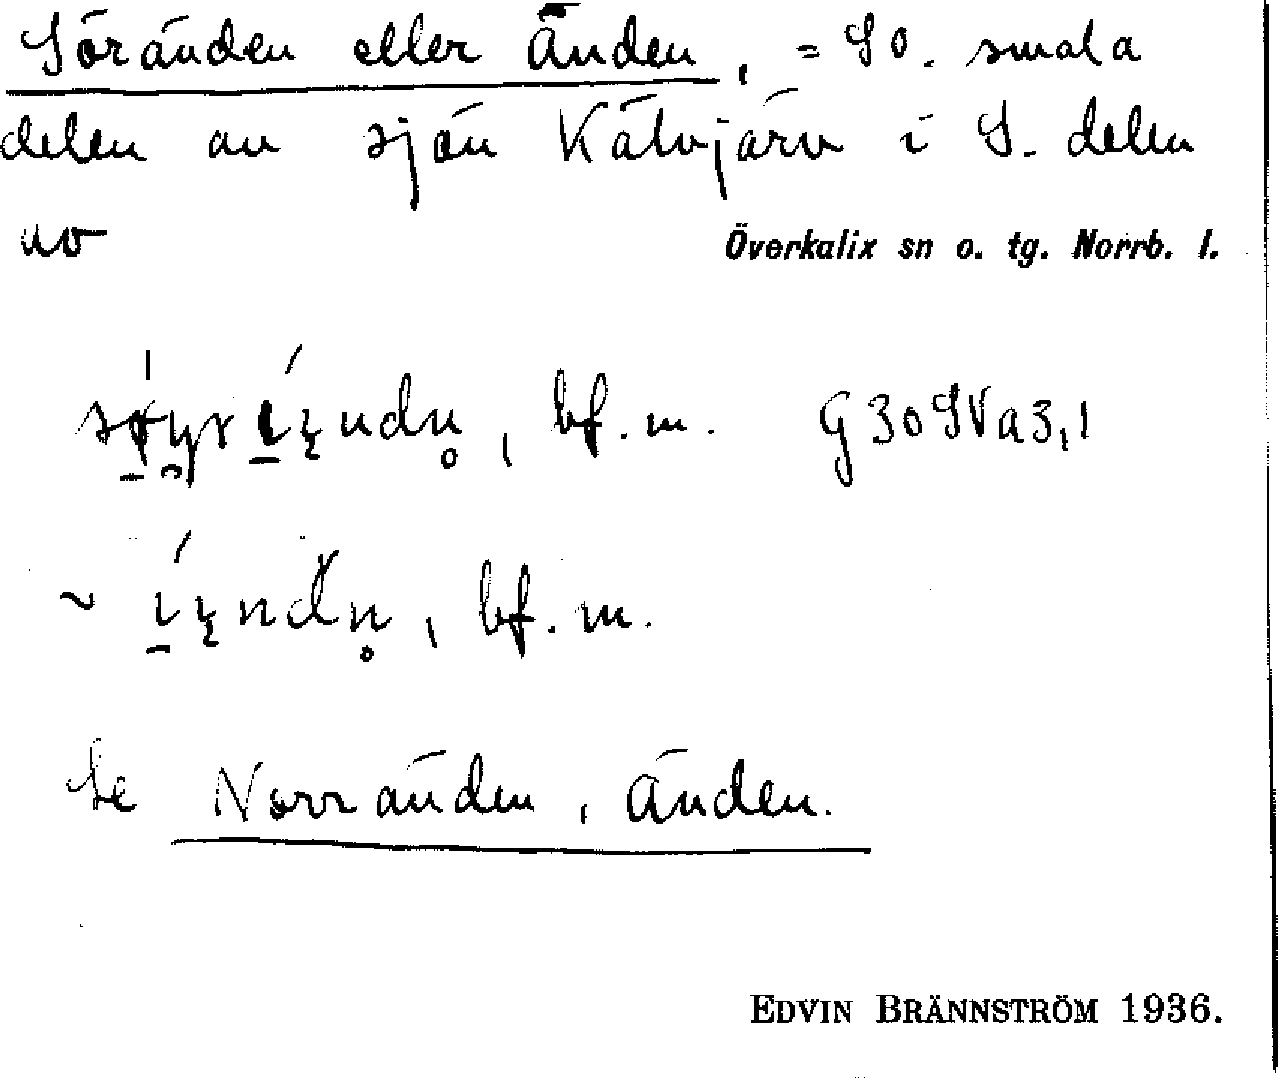 Söränden eller Änden, = SO. smala
delen av sjön Kälvjärv i S. delen
av Överkalix sn o. tg. Norrb. l.
bf. m. G30SVa3,1
~ bf. m.
Se Norränden, Änden.
EDVIN BRÄNNSTRÖM 1936.